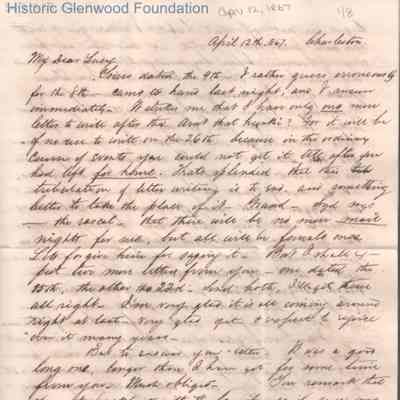 Historic Glenwood Foundation
Apr 12, 1867 1/8
April 12th /67. Charleston
My Dear Lucy
Yours dated the 9th – I rather guess erroneously
for the 8th – came to hand last night, and I answer
immediately. It strikes me that I have only one more
letter to write after this. Ain't that hunki? For it will be
of no use to write on the 26th because in the ordinary
course of events you could not get it till after you
had left for home. That's splendid – that this
tribulation of letter writing is to end, and something
better to take the place of it.
– the rascal – that there will be no more mail
nights for me, but all will be female ones
Let's forgive him for saying it. But I shall
just two more letters from you – one dated the
15th, the other the 22d. and both, I'll get
all right. I'm very glad it is all coming around
right at last – very glad yet & expect to rejoice
over it many years.
But to answer your letter. It was a good
long one, longer than I have got for some time
from you. Much obliged. You remark that